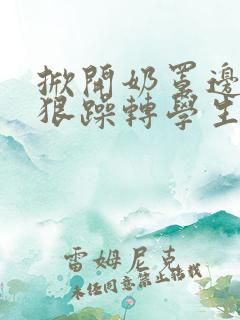 掀開奶罩邊
狠躁轉學生
雷姆尼克
未任同意禁止轉載